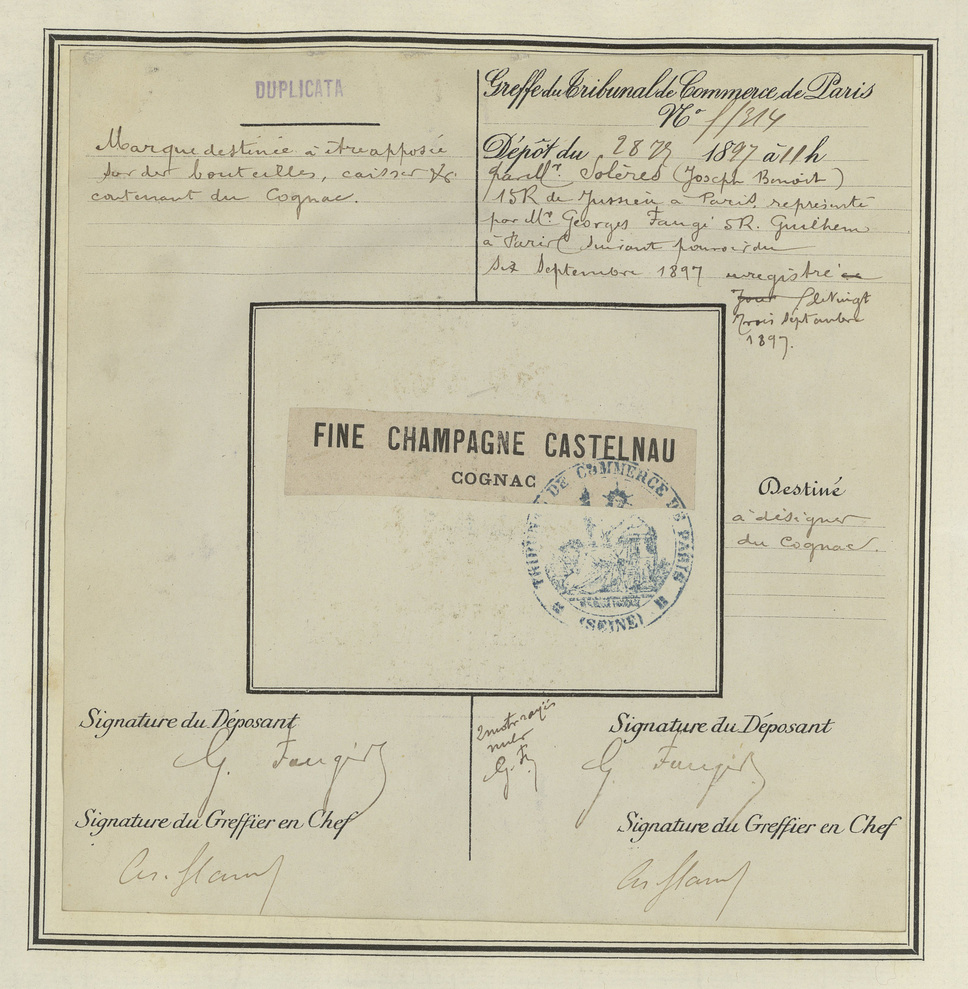 DUPLICATA
Marque destinée à être apposée
sur des bouteilles, caisses &c.
contenant du Cognac.
Greffe du Tribunal de Commerce de Paris
No 314
Dépôt du 28 1897 à 11 h
par Mr. Solères (Joseph Benoit)
15 R de Jussieu à Paris représenté
par Mr Georges Faugé 5 R. Guilhem
à Paris suivant pouvoir du
Six Septembre 1897 enregistré ce
Jour le Vingt
Trois Septembre
1897.
FINE CHAMPAGNE CASTELNAU
COGNAC
TRIBUNAL DE COMMERCE DE PARIS
(SEINE)
Destiné
à désigner
du Cognac.
Signature du Déposant
2 mots rayés
nuls
G. F.
Signature du Déposant
Signature du Greffier en Chef
Signature du Greffier en Chef